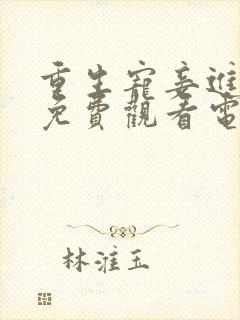 重生寵妾進
免費觀看電
林淮玉